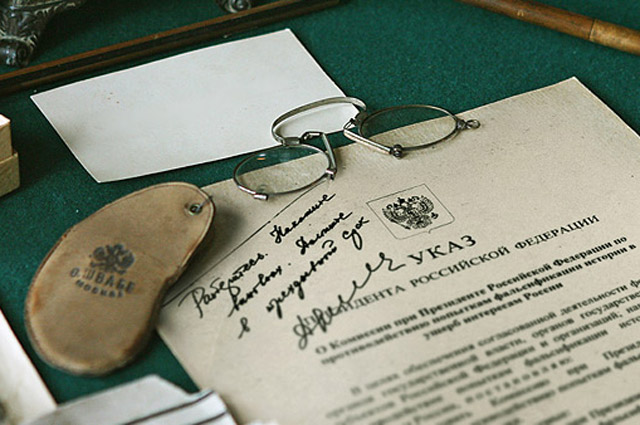 О. ШВАБЕ
МОСКВА
Разберитесь. Накажите
виновных. Данные
в трехдневный срок
УКАЗ
ПРЕЗИДЕНТА РОССИЙСКОЙ ФЕДЕРАЦИИ
О Комиссии при Президенте Российской Федерации по
противодействию попыткам фальсификации истории в
ущерб интересам России
В целях обеспечения согласованной деятельности
органов государственной власти, органов государст
Российской Федерации и организаций,
попыткам фальсификации
России, постановляю:
Комиссию при Президенте
попыткам фал